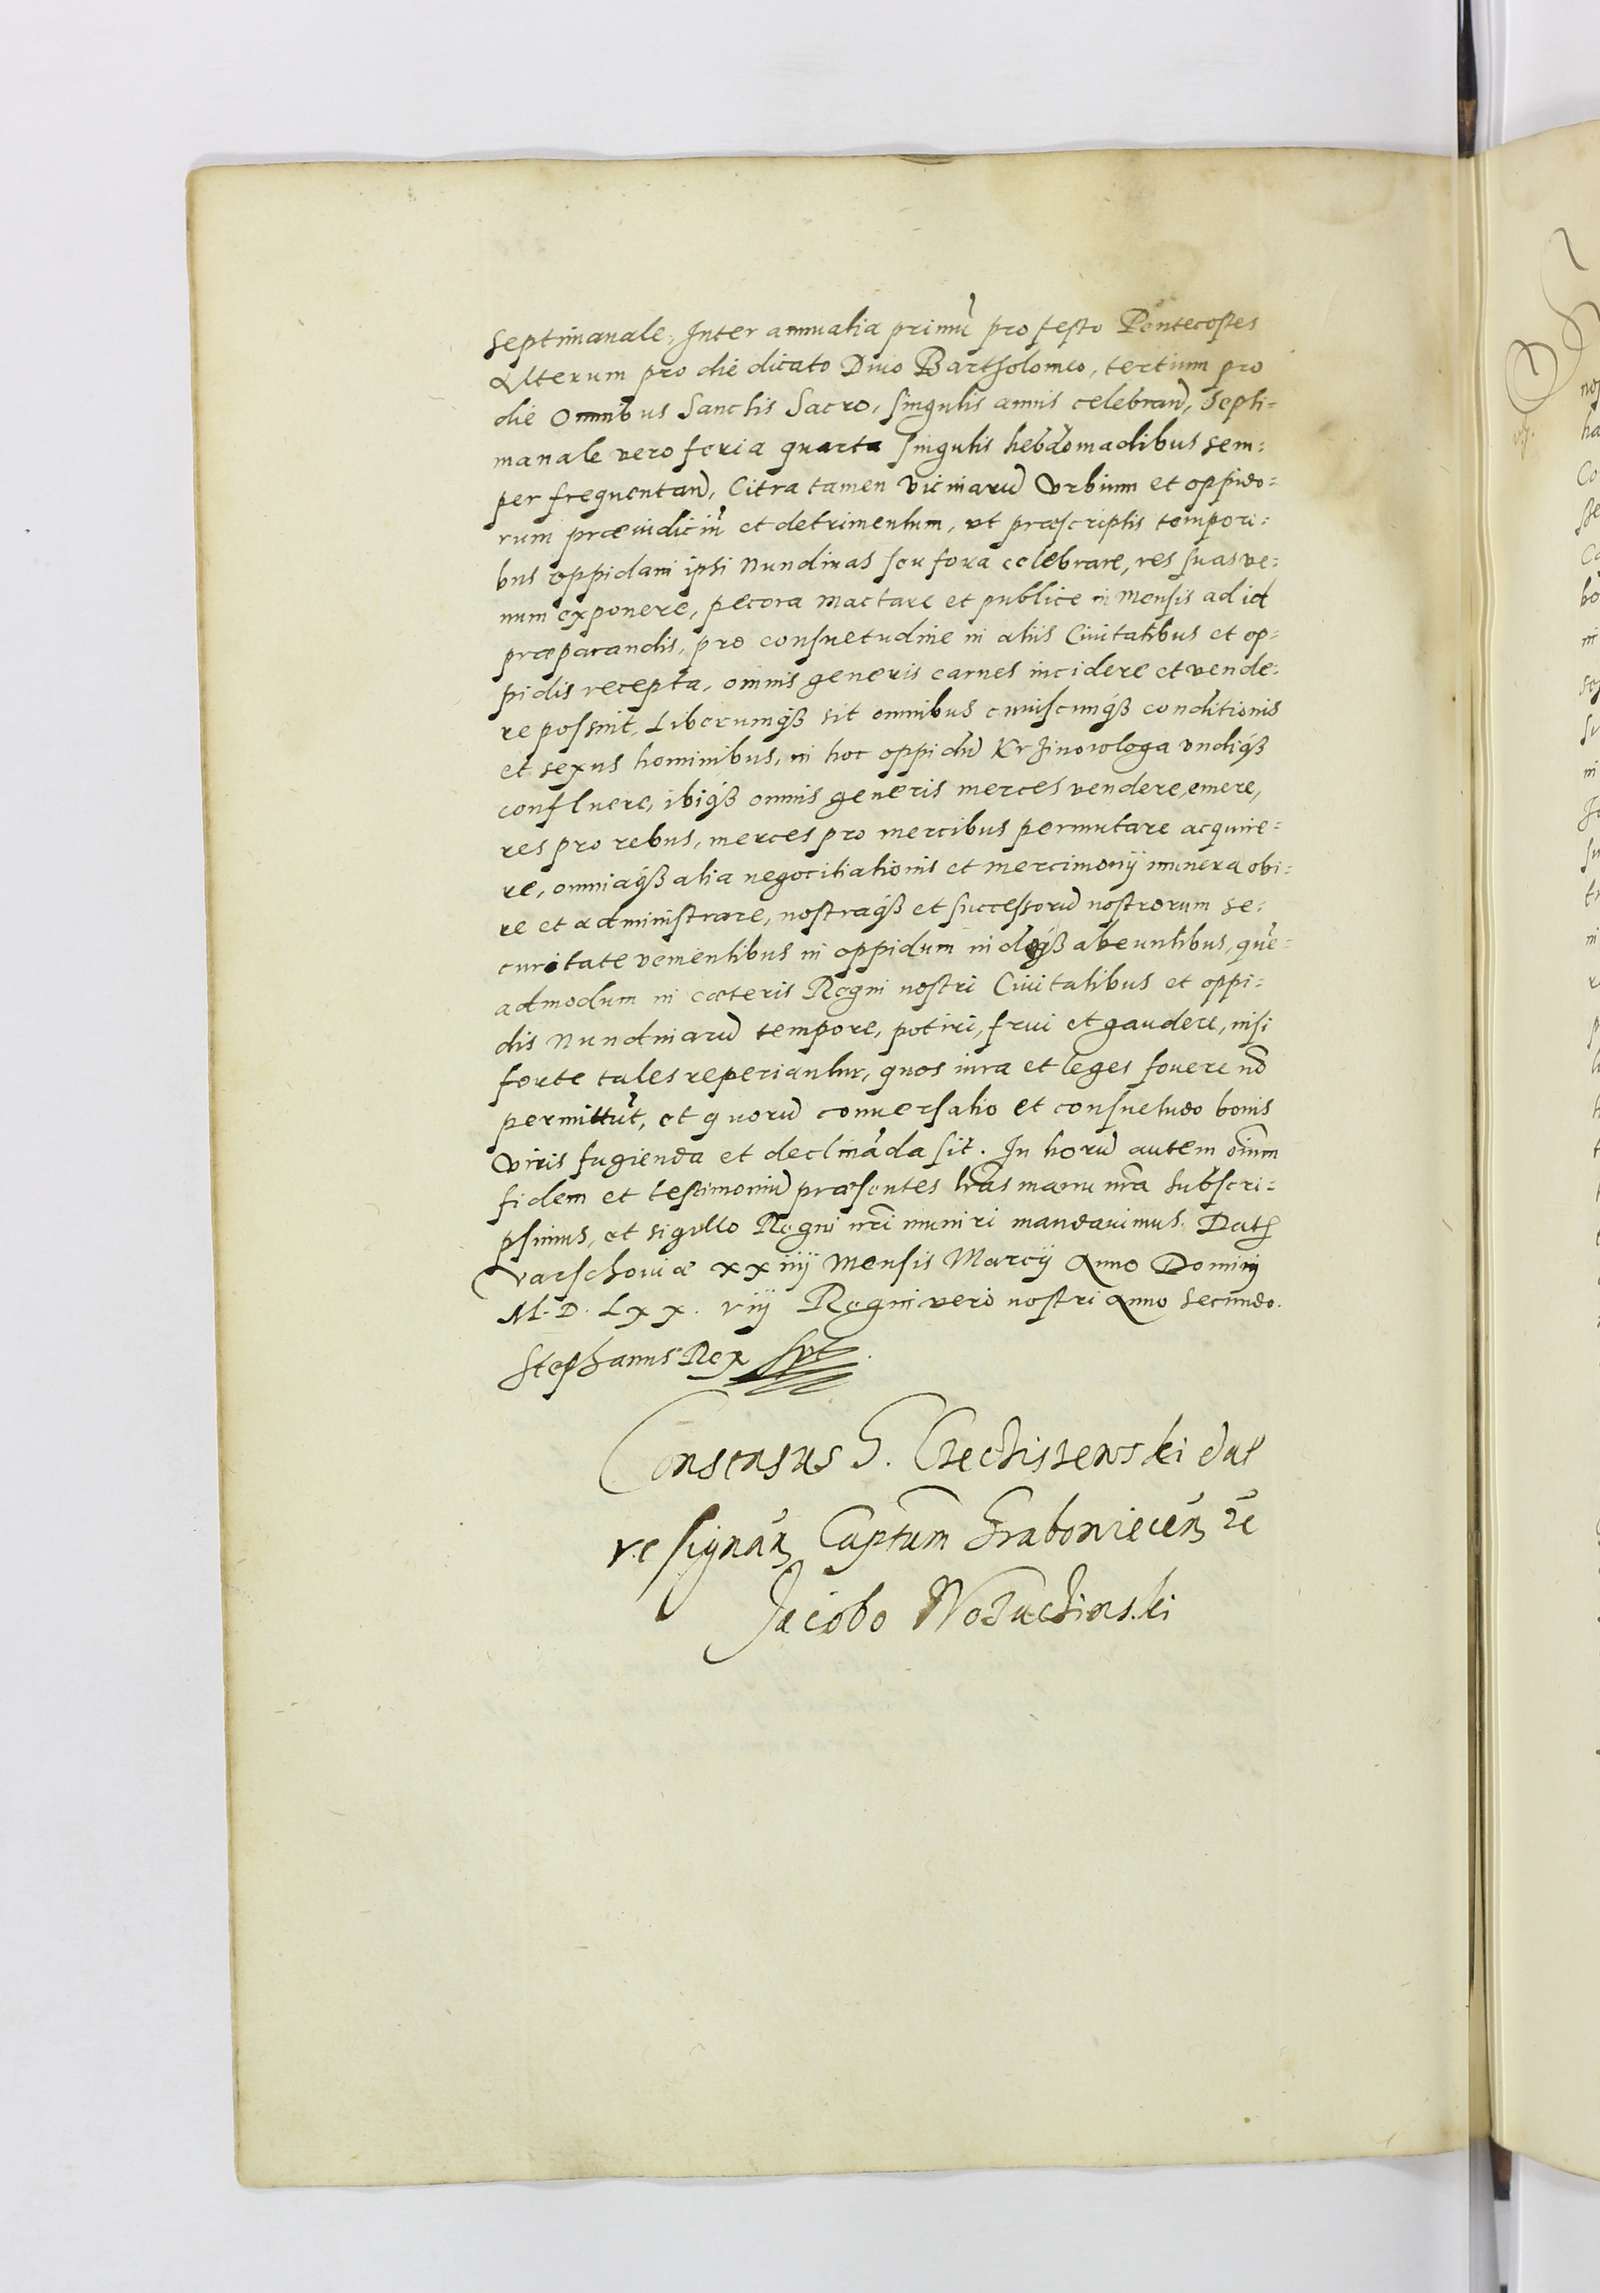 septimanale, Inter annualia primũ pro festo Pentecostes
Alterum pro die dicato Diuo Bartholomeo, tertium pro
die Omnibus Sanctis Sacro, singulis annis celebrand, Septi=
manale vero feria quarta singulis hebdomadibus sem=
per frequentand, Citra tamen vicinarũ Vrbium et oppido=
rum præiudiciũ et detrimentum, vt præscriptis tempori=
bus oppidani ipsi Nundinas seu fora celebrare, res suas ve=
num exponere, pecora mactare et publice in mensis ad id
præparandis, pro consuetudine in aliis Ciuitatibus et op=
pidis recepta, omnis generis carnes incidere et vende=
re possint, Liberumqȝ sit omnibus cuiuscunqȝ conditionis
et sexus hominibus, in hoc oppidũ Krzinowloga vndiqȝ
confluere, ibiqȝ omnis generis merces vendere, emere,
res pro rebus, merces pro mercibus permutare acquire=
re, omniaqȝ alia negocitiationis et mercimonij munera obi=
re et administrare, nostraqȝ et successorũ nostrorum se=
curitate venientibus in oppidum indeqȝ abeuntibus, quẽ=
admodum in cæteris Regni nostri Ciuitatibus et oppi=
dis Nundinarũ tempore, potiri, frui et gaudere, nisi
forte tales reperiantur, quos iura et leges fouere nõ
permittũt, et quorũ conuersatio et consuetudo bonis
viris fugienda et declinãda sit. In horũ autem oim̃
fidem et testimoniũ præsentes lrãs manu nrã subscri=
psimus, et sigillo Regni nrĩ muniri mandauimus. Dat
Varschouiæ xxiiij Mensis Marcij Anno Domini
M. D. Lxx. viij Regni vero nostri Anno secundo.
Stephanus Rex sst
Consensus G. Czechiszewski dat
resignan Capteam Grabouiecen
Jacobo Wosuchinski